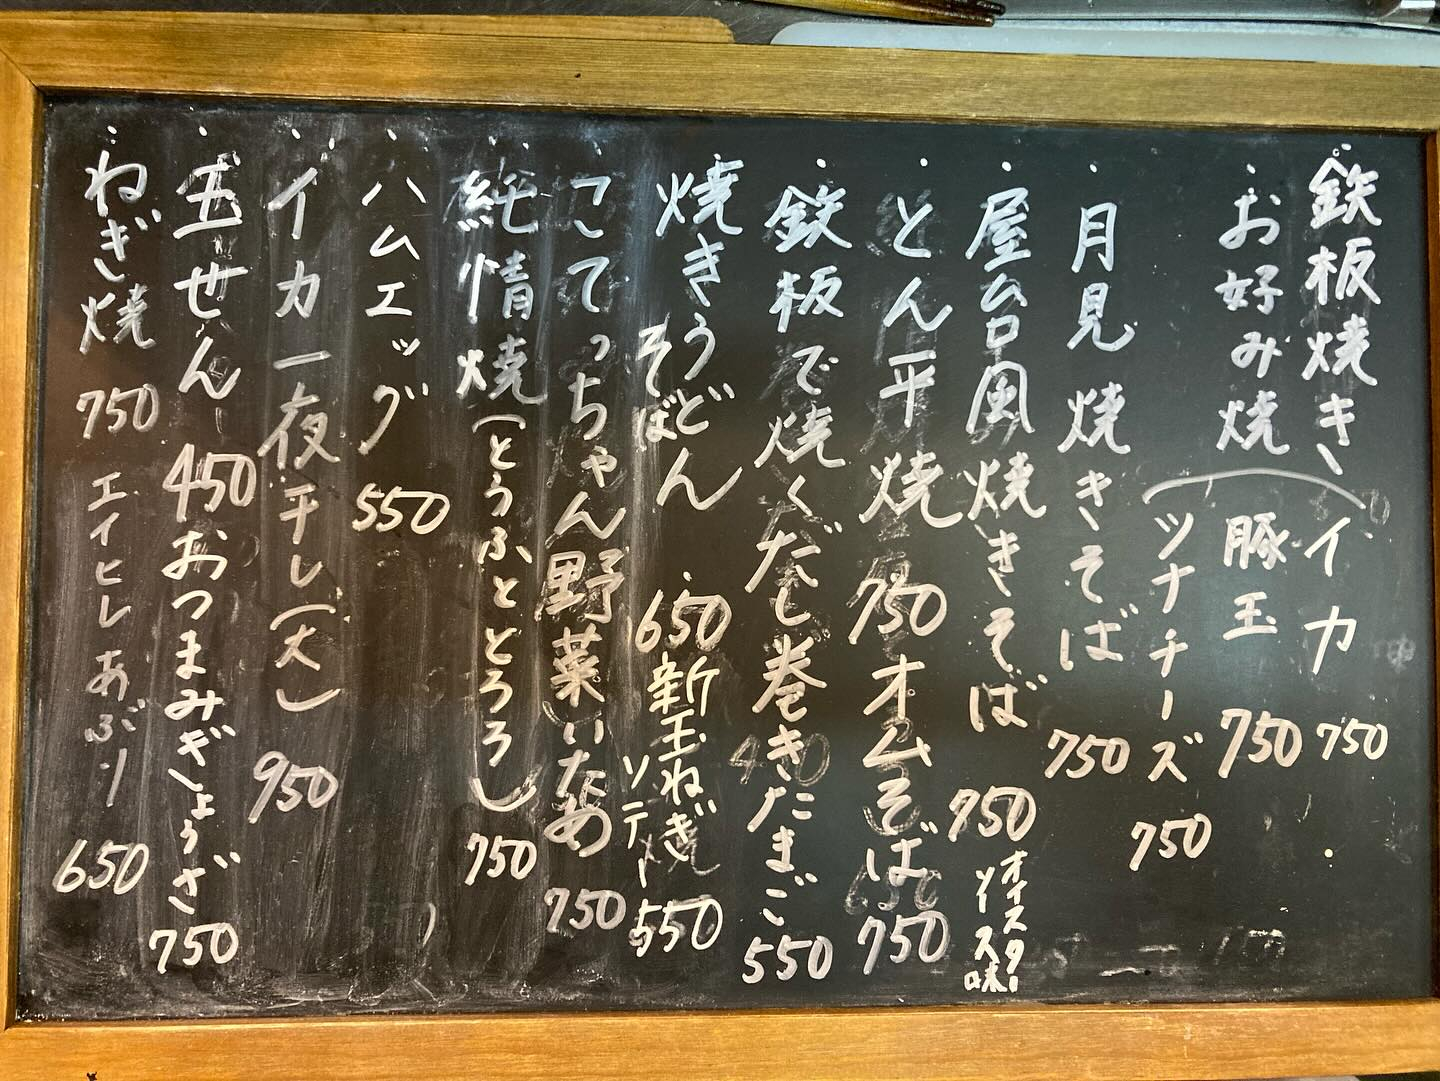 鉄板焼き
お好み焼
イカ 750
豚玉 750
ツナチーズ 750
月見焼きそば 750
屋台風焼きそば 750
オイスターソース味
とん平焼 750
オムそば 750
鉄板で焼くだし巻きたまご 550
焼きうどん
そば 650
新玉ねぎ
ソテー 550
こてっちゃん野菜いため 750
純情焼(とうふととろろ) 750
ハムエッグ 550
イカ一夜干し(大) 950
玉せん 450
おつまみぎょうざ 750
ねぎ焼 750
エイヒレあぶり 650